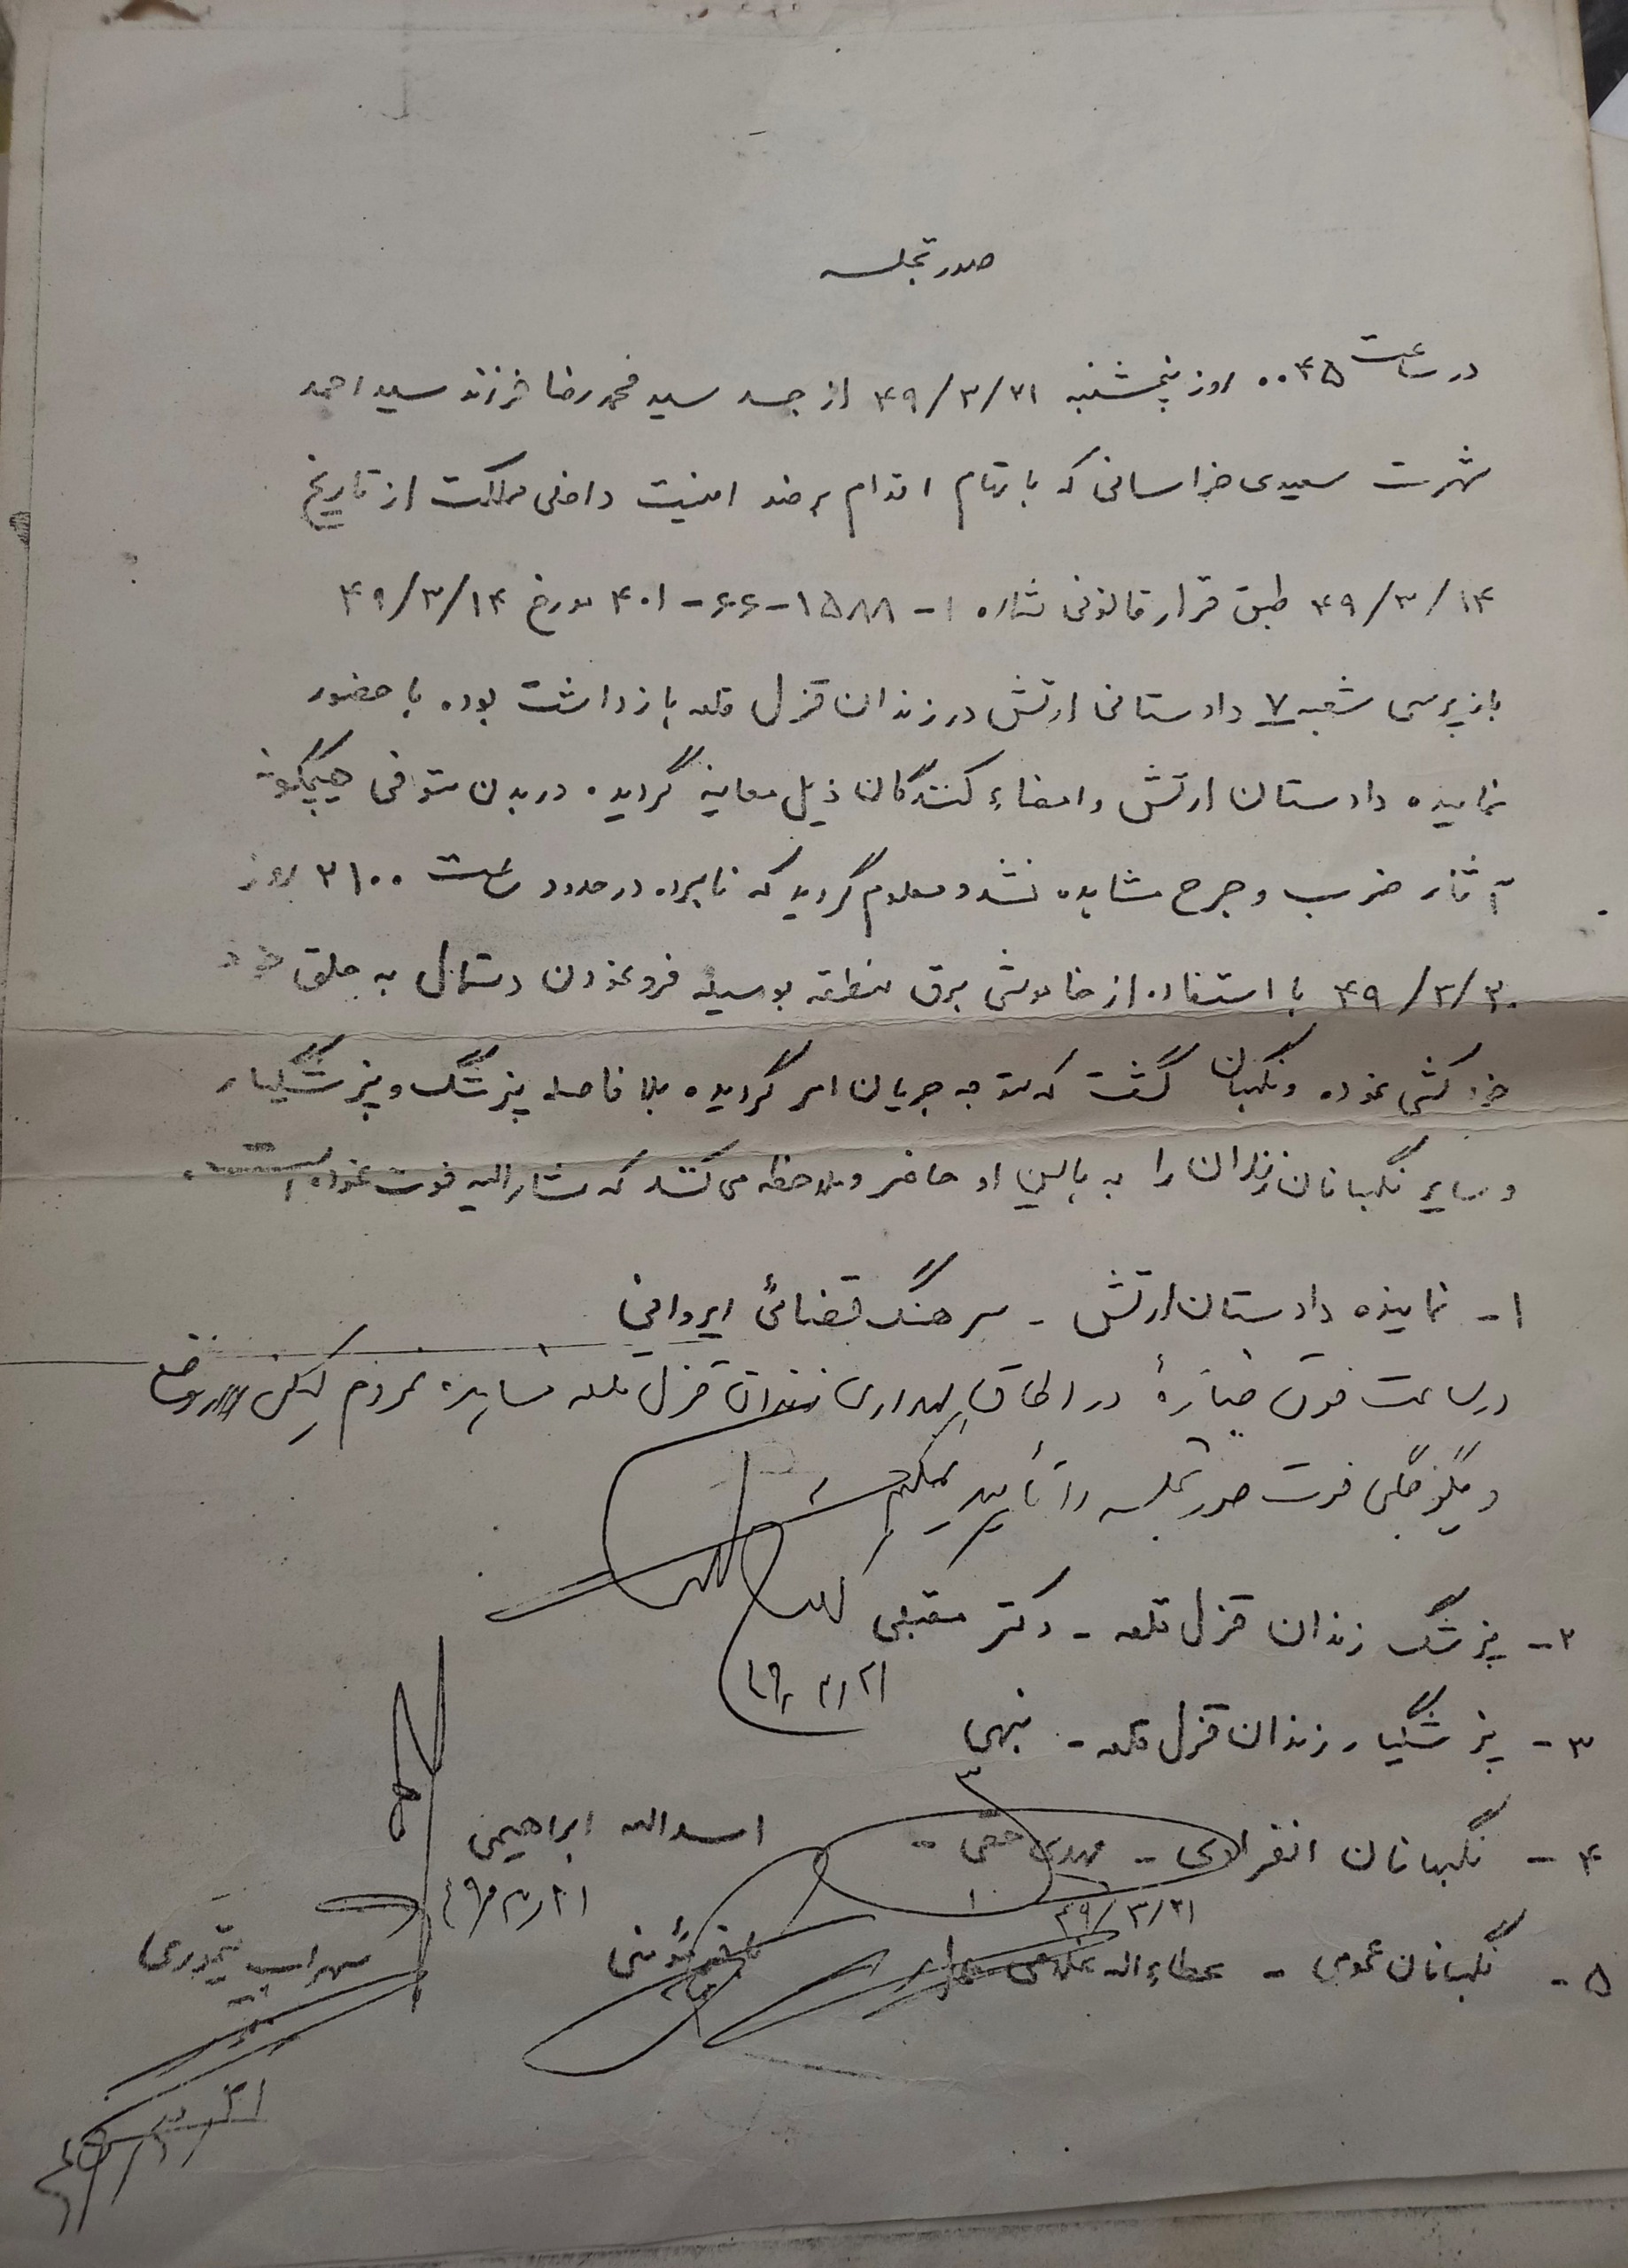 صورتجلسه
در ساعت ۰۰۴۵ روز پنجشنبه ۴۹/۳/۲۱ از جسد سید محمدرضا فرزند سید احمد
شهرت سعیدی خراسانی که باتهام اقدام بر ضد امنیت داخلی مملکت از تاریخ
۴۹/۳/۱۴ طبق قرار قانونی شماره ۱-۱۵۸۸-۶۶-۴۰۱ مورخ ۴۹/۳/۱۴
بازپرسی شعبه ۷ دادستانی ارتش در زندان قزل قلعه بازداشت بوده با حضور
نماینده دادستان ارتش و امضاء کنندگان ذیل معاینه گردیده در بدن متوفی هیچگونه
آثار ضرب و جرح مشاهده نشد و معلوم گردید که نامبرده در حدود ساعت ۲۱۰۰ روز
۴۹/۳/۲۰ با استفاده از خاموشی برق منطقه بوسیله فرو نمودن دستمال به حلق خود
خودکشی نموده و نگهبان گشت که متوجه جریان امر گردیده بلافاصله پزشک و پزشکیار
و سایر نگهبانان زندان را به بالین او حاضر و ملاحظه می کنند که مشارالیه فوت نموده است.
۱- نماینده دادستان ارتش - سرهنگ قضائی ایروانی
در ساعت فوق جنازهٔ در اطاق بهداری زندان قزل قلعه مشاهده نمودم لیکن
و چگونگی فوت صورتجلسه را تأیید میکنم
۲- پزشک زندان قزل قلعه - دکتر مقبلی
۴۹/۳/۲۱
۳- پزشکیار زندان قزل قلعه - نبهی
۴- نگهبانان انفرادی - مهدی حقی - اسداله ابراهیمی
۴۹/۳/۲۱ ۴۹/۳/۲۱
۵- نگهبانان عمومی - عطاءاله غلامی سهراب تیموری
۴۹/۳/۲۱